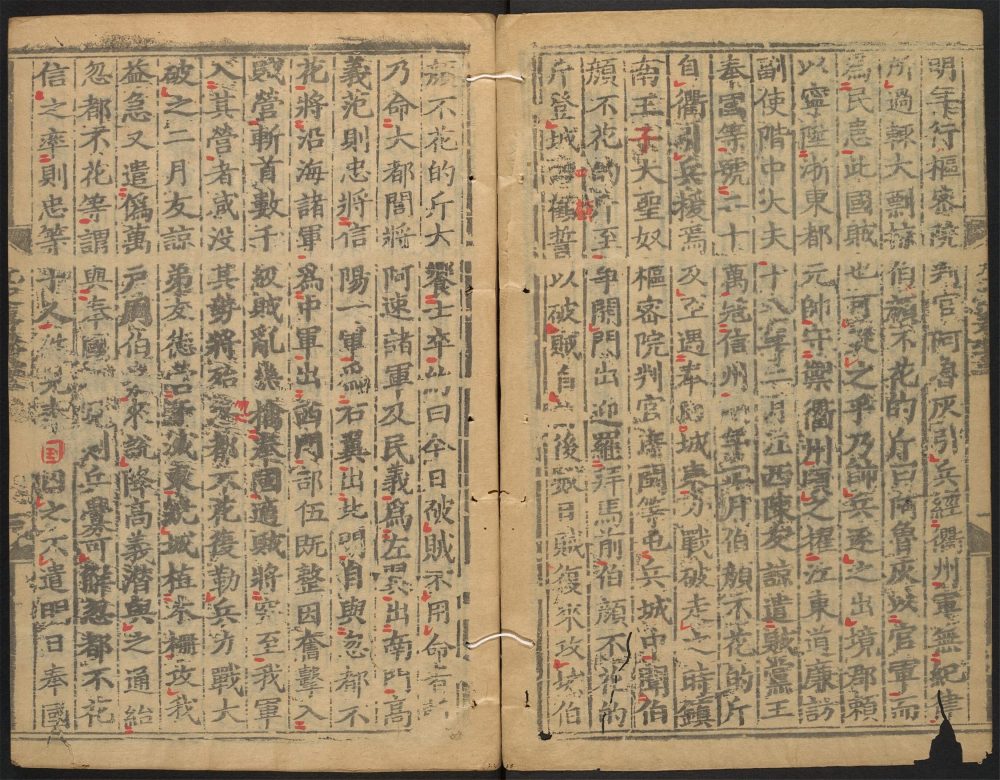 明年行樞密院判官阿魯灰引兵經衢州軍無紀律
所過輒大剽掠伯顏不花的斤曰阿魯灰以官軍而
為民患此國賊也可縱之乎乃帥兵逐之出境郡賴
以寧陞浙東都元帥守禦衢州頃之擢江東道廉訪
副使階中大夫十八年二月江西陳友諒遣賊黨王
奉國等號二十萬寇信州明年正月伯顏不花的斤
自衢引兵援焉及至遇奉國城東力戰破走之時鎮
南王子大聖奴樞密院判官席閏等屯兵城中聞伯
顏不花的斤至爭開門出迎羅拜馬前伯顏不花的
斤登城誓以破賊自後數日賊復來攻城伯
顏不花的斤大饗士卒約曰今日破賊不用命者
乃命大都閭將阿速諸軍及民義為左翼出南門高
義范則忠將信陽一軍為右翼出北門自與忽都不
花將沿海諸軍為中軍出西門部伍既整因奮擊入
賊營斬首數千級賊亂幾擒奉國適賊將突至我軍
入其營者咸没其勢將殆忽都不花復勒兵力戰大
破之二月友諒弟友德營于城東繞城植木柵攻我
益急又遣僞萬戶周伯來說降高義潛與之通紿
忽都不花等謂與奉國見則兵釁可解忽都不花
信之率則忠等十人往見奉國囚之不遣明日奉國